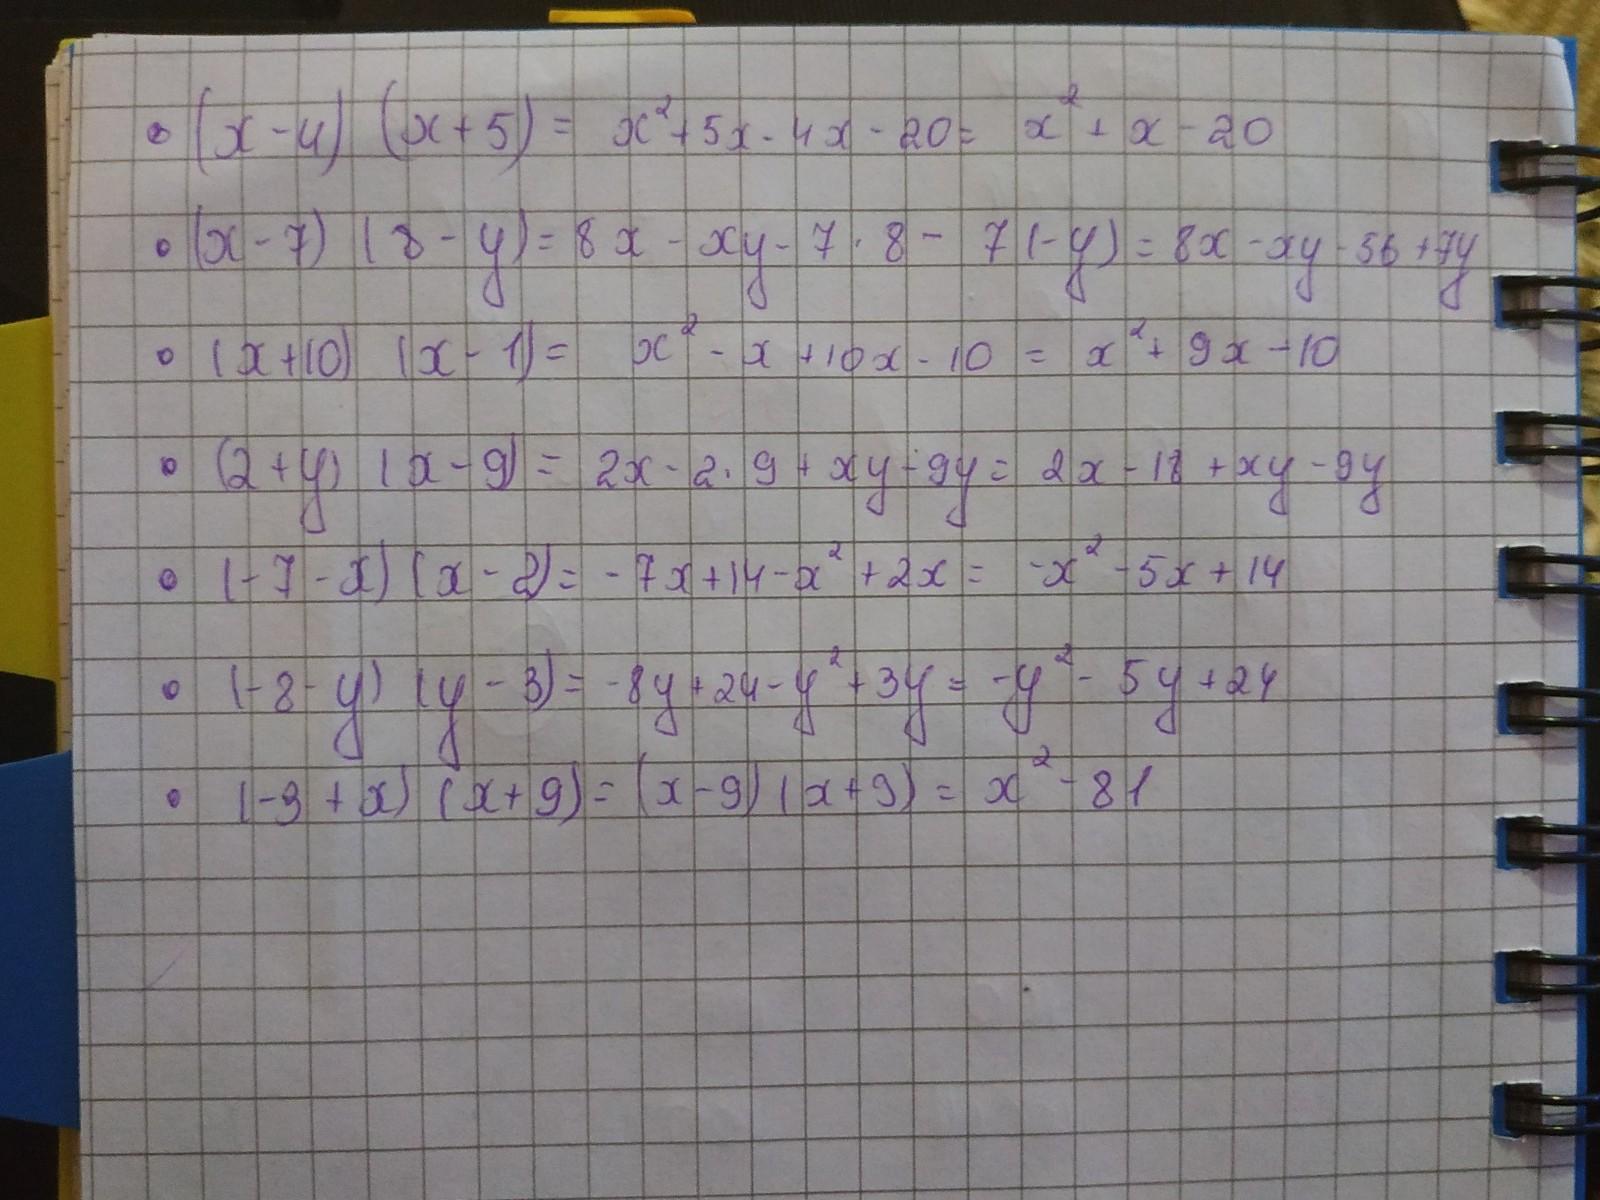 • (x - 4) (x + 5) = x² + 5x - 4x - 20 = x² + x - 20
• (x - 7) (8 - y) = 8x - xy - 7 · 8 - 7(-y) = 8x - xy - 56 + 7y
• (x + 10) (x - 1) = x² - x + 10x - 10 = x² + 9x - 10
• (2 + y) (x - 9) = 2x - 2 · 9 + xy - 9y = 2x - 18 + xy - 9y
• (-7 - x) (x - 2) = -7x + 14 - x² + 2x = -x² - 5x + 14
• (-8 - y) (y - 3) = -8y + 24 - y² + 3y = -y² - 5y + 24
• (-9 + x) (x + 9) = (x - 9) (x + 9) = x² - 81